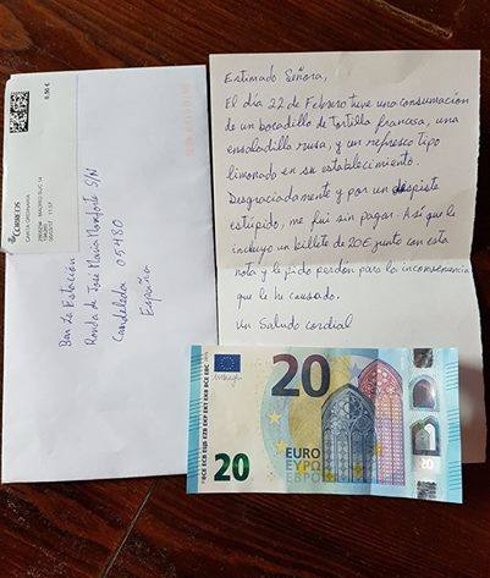 Estimado Señora,
El día 22 de Febrero tuve una consumación
de un bocadillo de Tortilla francesa, una
ensaladilla rusa, y un refresco tipo
limonada en su establecimiento.
Desgraciadamente y por un despiste
estúpido, me fui sin pagar. Así que le
incluyo un billete de 20€ junto con esta
nota y le pido perdón para la inconveniencia
que le he causado.
Un Saludo cordial
Bar La Estación
Ronda de Jose Maria Monforte S/N
Candeleda 05480
España
CORREOS
CARTA ORDINARIA
11:57
0,50 €
20
EURO
ΕΥΡΩ
ЕВРО
20
20
BCE ECB ЕЦБ EZB EKP EKT EKB BCE EBC